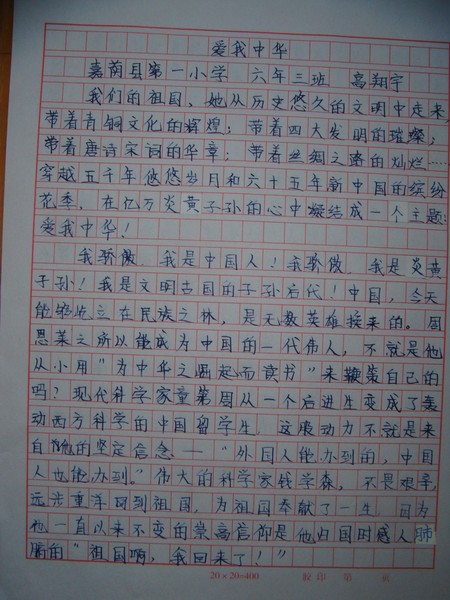 爱我中华
嘉荫县第一小学 六年三班 翔宇
我们的祖国，她从历史悠久的文明中走来，
带着青铜文化的辉煌；带着四大发明的璀璨；
带着唐诗宋词的华章；带着丝绸之路的灿烂……
穿越五千年悠悠岁月和六十五年新中国的缤纷
花季，在亿万炎黄子孙的心中凝结成一个主题：
爱我中华！
我骄傲，我是中国人！我骄傲，我是炎黄
子孙！我是文明古国的子孙后代！中国，今天
能够屹立在民族之林，是无数英雄换来的。周
恩莱之所以能成为中国的一代伟人，不就是他
从小用“为中华之崛起而读书”来鞭策自己的
吗？现代科学家童第周从一个后进生变成了轰
动西方科学的中国留学生，这股动力不就是来
自他的坚定信念——“外国人能办到的，中国
人也能办到。”伟大的科学家钱学森，不畏艰辛，
远涉重洋回到祖国，为祖国奉献了一生，因为
他一直以来不变的崇高信仰是他归国时感人肺
腑的“祖国啊，我回来了！”
20×20=400 第 页